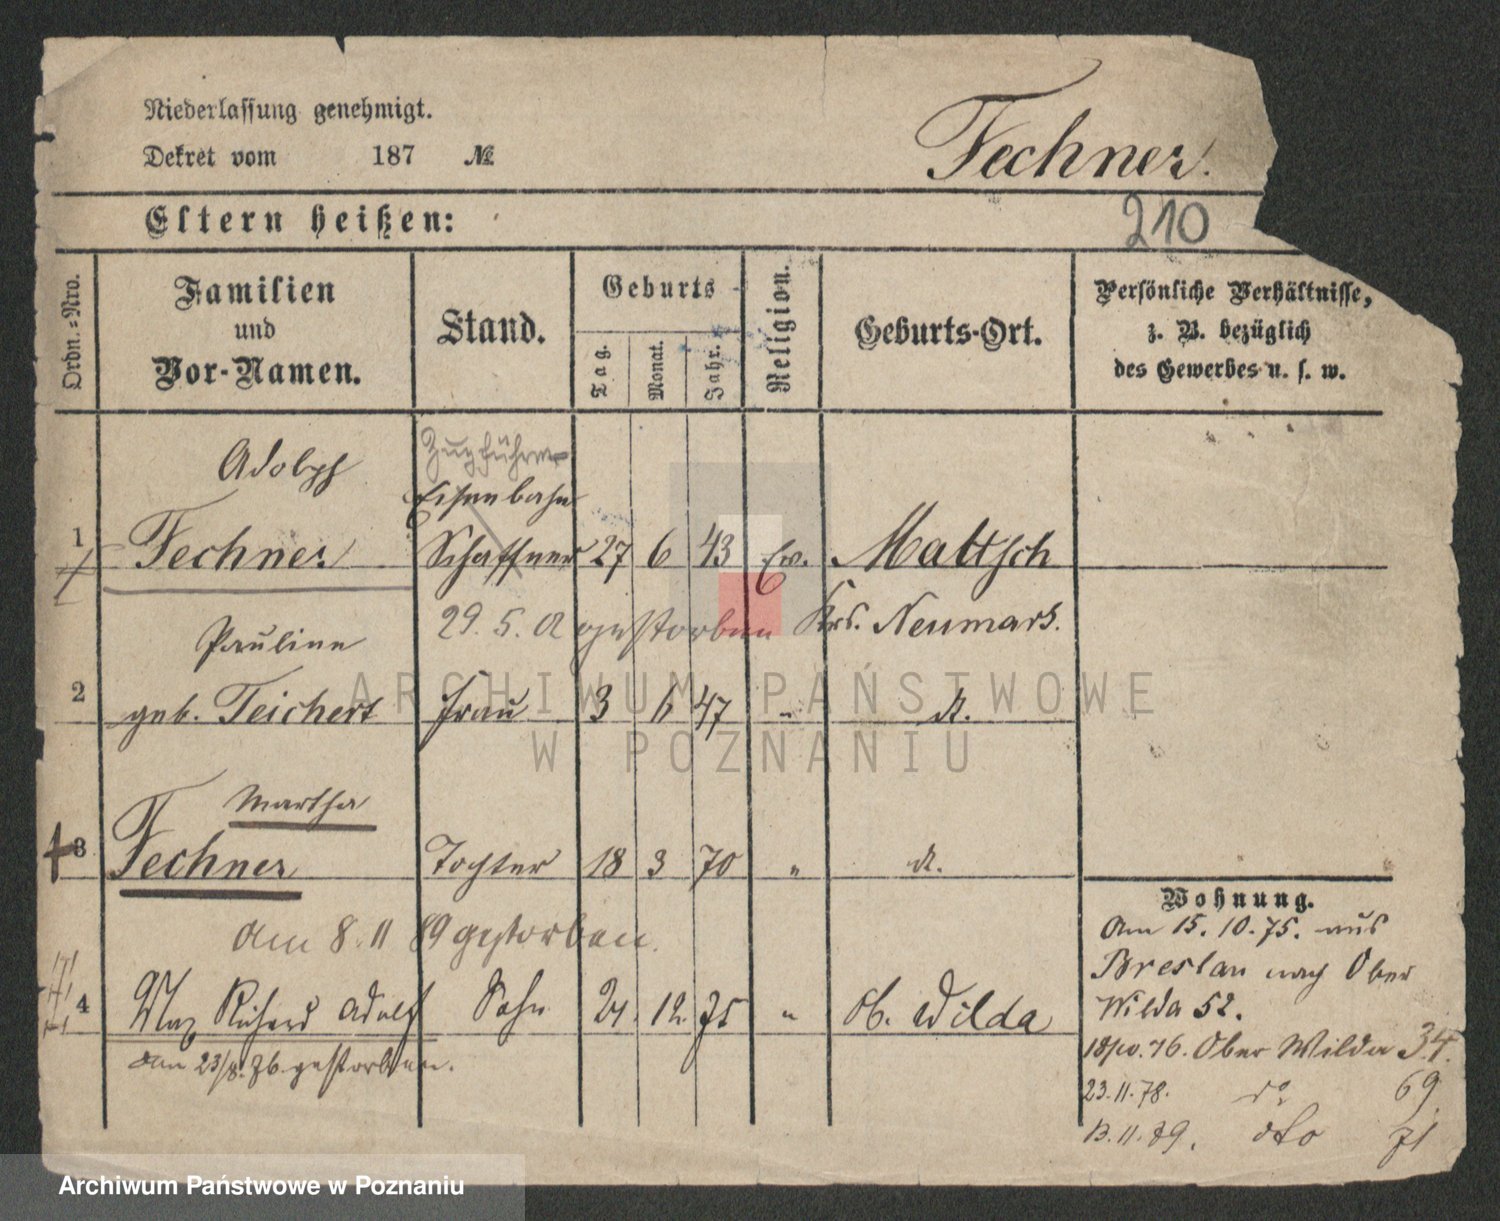 Niederlassung genehmigt.
Dekret vom 187 №
Fechner.
Eltern heißen:
210
Ordn.=Nro.
Familien
und
Vor-Namen.
Stand.
Geburts
Tag.
Monat.
Jahr.
Religion.
Geburts-Ort.
Persönliche Verhältnisse,
z. B. bezüglich
des Gewerbes u. s. w.
Adolph
Zugführer
Eisenbahn
1 Fechner Schaffner 27 6 43 Ev. Maltsch
29. 5. gestorben Krs. Neumark.
Pauline
2 geb. Teichert Frau 3 6 47 " d.
Martha
3 Fechner Tochter 18 3 70 " d.
am 8. 11 89 gestorben.
4 Max Richard Adolf Sohn 21. 12. 75 " Ob. Wilda
am 23/8. 76. gestorben.
Wohnung.
Am 15. 10. 75. aus
Breslau nach Ober
Wilda 52.
18/10. 76. Ober Wilda 34.
23. 11. 78. do 69
13. 11. 89. dto 71
ARCHIWUM PAŃSTWOWE
W POZNANIU
Archiwum Państwowe w Poznaniu